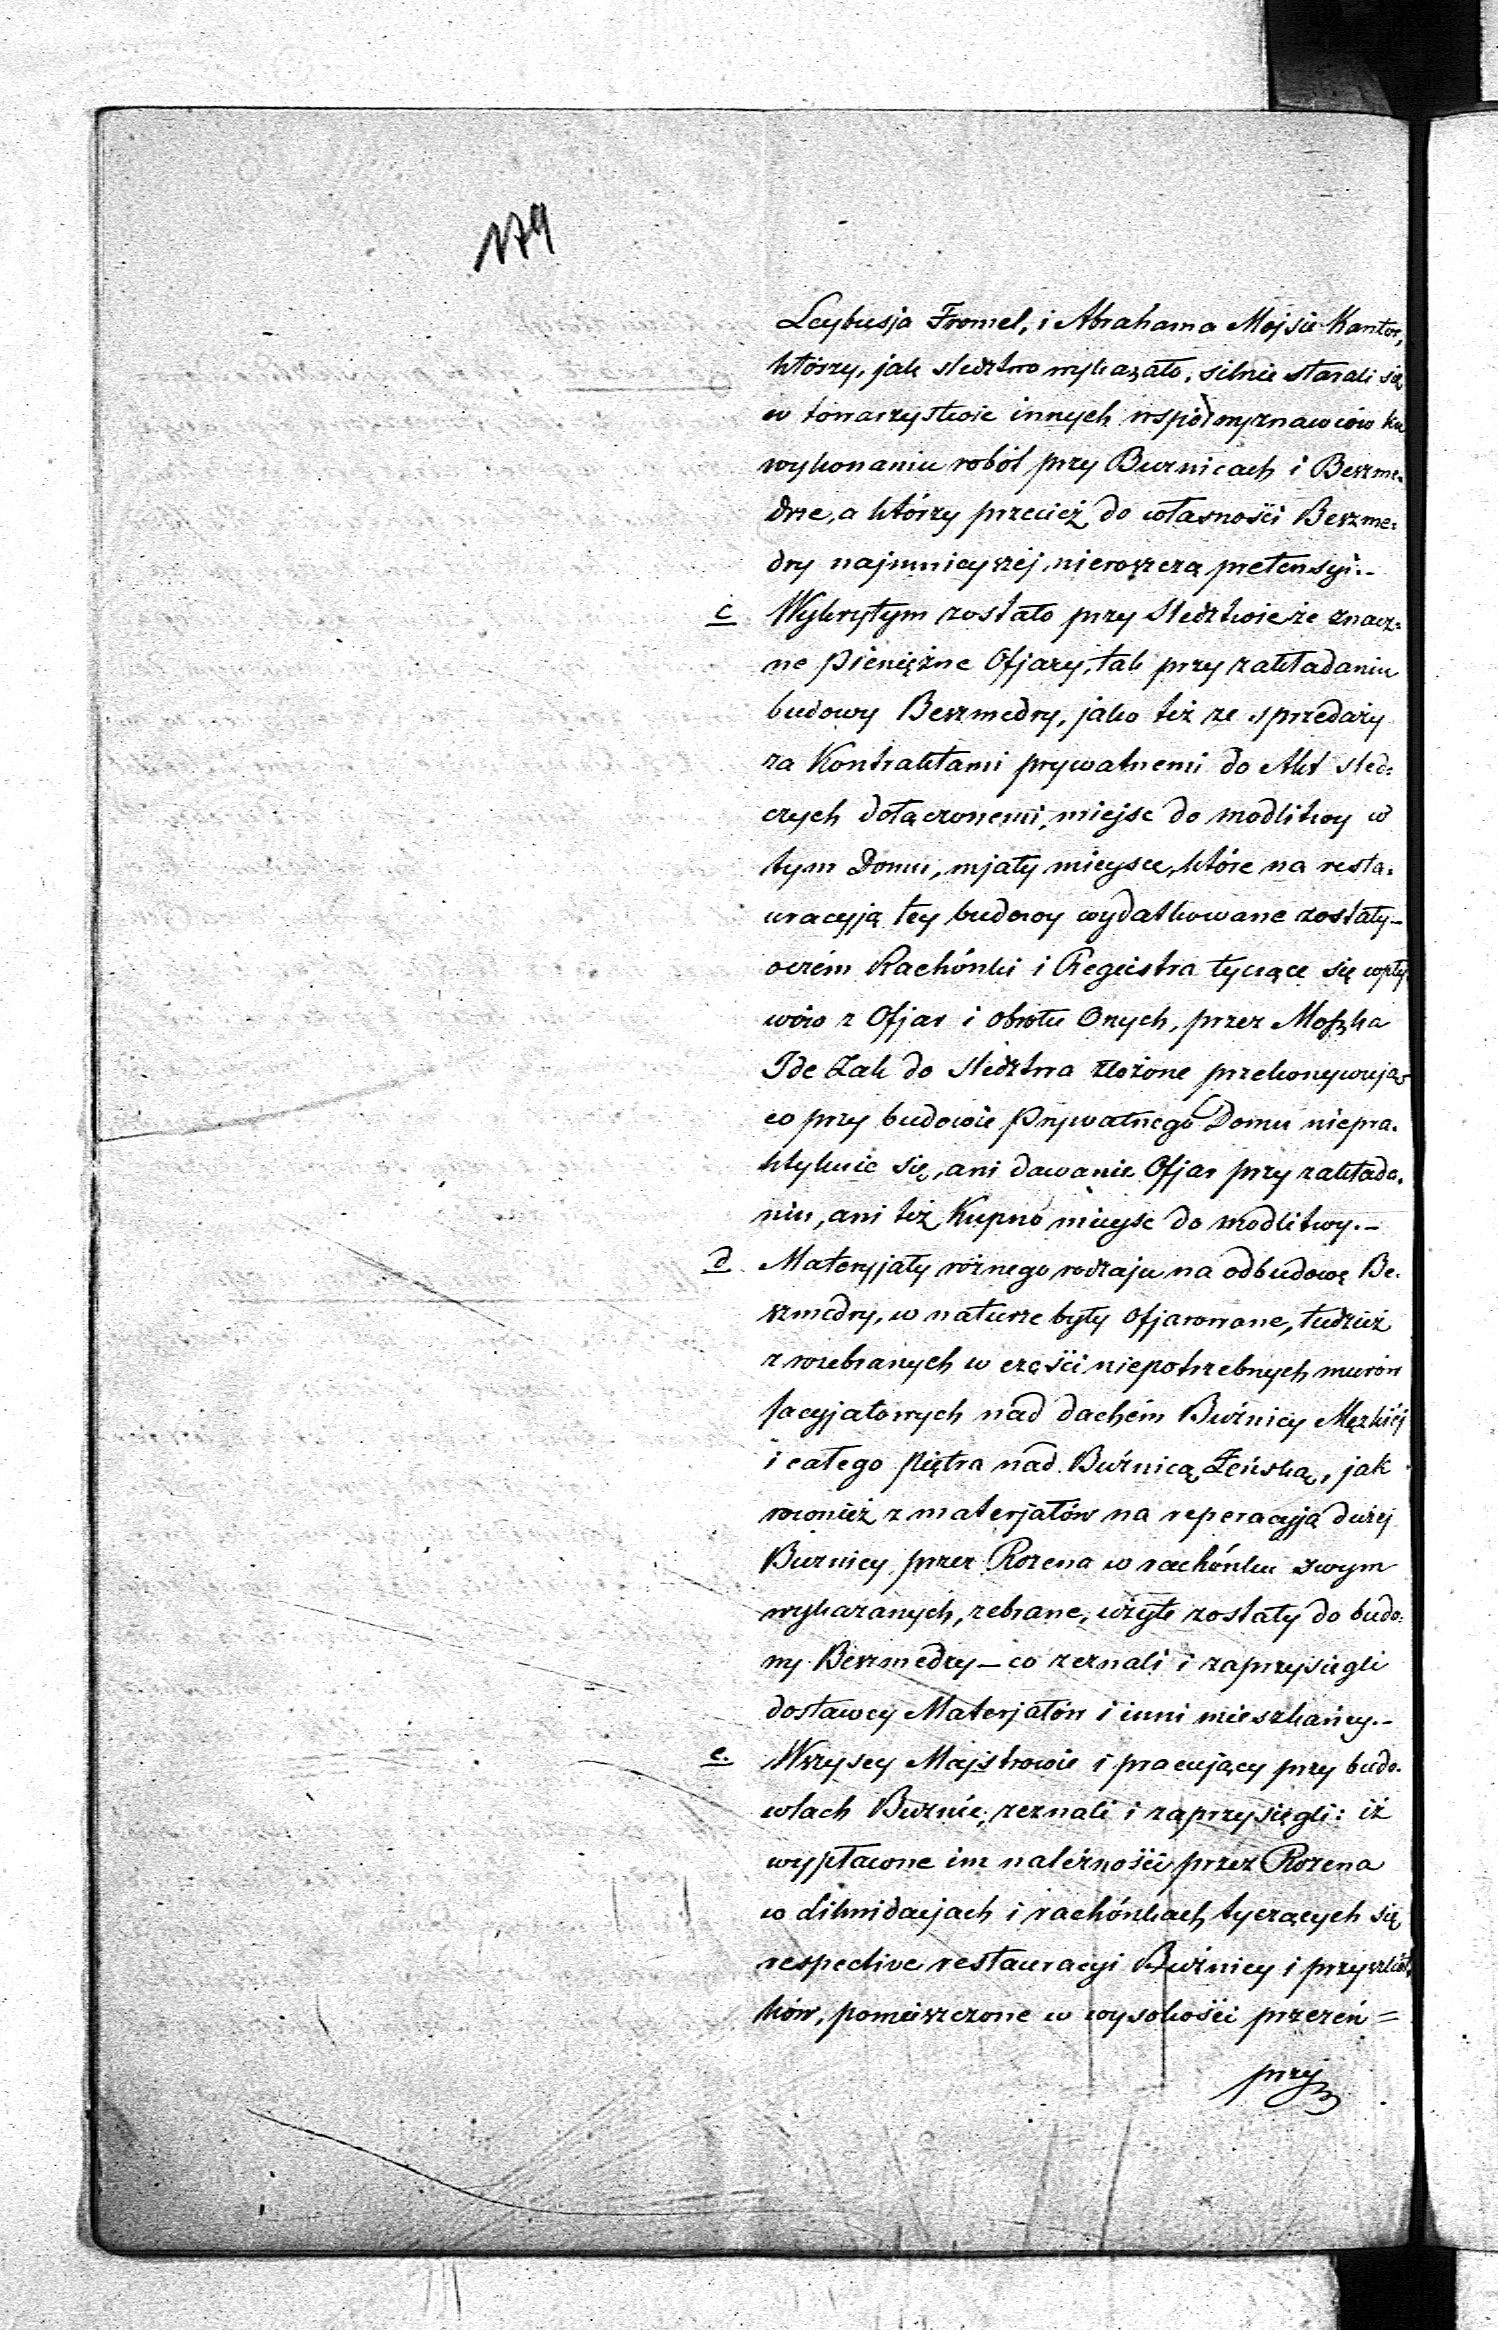 179
Leybusja Fromel, i Abrahama Mojsie Kantor,
którzy, jak śledztwo wykazało, silnie starali się
w towarzystwie innych współwyznawców ku
wykonaniu robót przy Buznicach i Beszme-
drze, a którzy przecież do własności Beszme-
dry najmnieyszéj nieroszczą pretensyi.-
c Wykrytym zostało przy śledztwie że znacz-
ne pieniężne Ofjary, tak przy zakładaniu
budowy Beszmedry, jako też ze sprzedaży
za Kontraktami prywatnemi do Akt śled-
czych dołączonemi, miejsc do modlitwy w
tym Domu, mjały mieysce, które na resta-
uracyją tey budowy wydatkowane zostały -
oczém Rachónki i Regiestra tyczące się wpły
wów z Ofjar i obrotu Onych, przez Moszka
Ide Żak do śledztwa złożone przekonywują
co przy budowie Prywatnego Domu niepra-
ktykuie się, ani dawanie Ofjar przy zakłada-
niu, ani też Kupno mieysc do modlitwy.-
d Materyjały róznego rodzaju na odbudowę Be-
szmedry, w naturze były ofjarowane, tudzież
z rozebranych w części niepotrzebnych murów
facyjatowych nad dachém Buźnicy Męzkiéj
i całego piętra nad Buźnicą Żeńską, jak
rowonież z materjałów na reperacyją dużéj
Buznicy przez Rozena w rachónku swym
wykazanych, zebrane, użyte zostały do budo-
wy Beszmedry - co zeznali i zaprzysiegli
dostawcy Materjałów i inni mieszkańcy.-
e. Wszyscy Majstrowie i pracujący przy budo-
wlach Buznic, zeznali i zaprzysięgli: iż
wypłacone im należności przez Rozena
w Likwidacjach i rachónkach tyczących się
respective restauracyi Buźnicy i przyszkół
ków, pomieszczone w wysokości przezeń =
przy